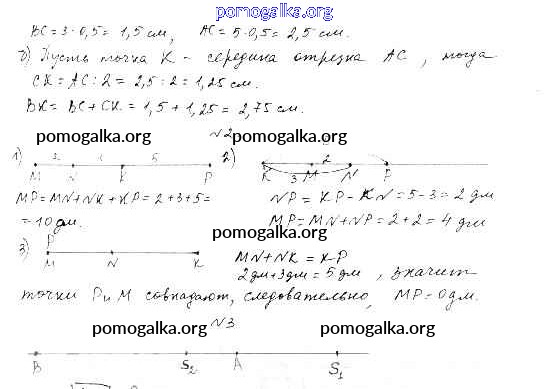 pomogalka.org
BC = 3·0,5 = 1,5 см, AC = 5·0,5 = 2,5 см.
б) Пусть точка K - середина отрезка AC, тогда
CK = AC : 2 = 2,5 : 2 = 1,25 см.
BK = BC + CK = 1,5 + 1,25 = 2,75 см.
pomogalka.org №2 pomogalka.org
1) 2 5 2) 2
M N K P K 3 M N P
MP = MN + NK + KP = 2 + 3 + 5 = NP = KP - KN = 5 - 3 = 2 дм
= 10 дм. MP = MN + NP = 2 + 2 = 4 дм
pomogalka.org
3) P
M N K MN + NK = KP
2 дм + 3 дм = 5 дм, значит
точки P и M совпадают, следовательно, MP = 0 дм.
№3
pomogalka.org pomogalka.org
B S₂ A S₁